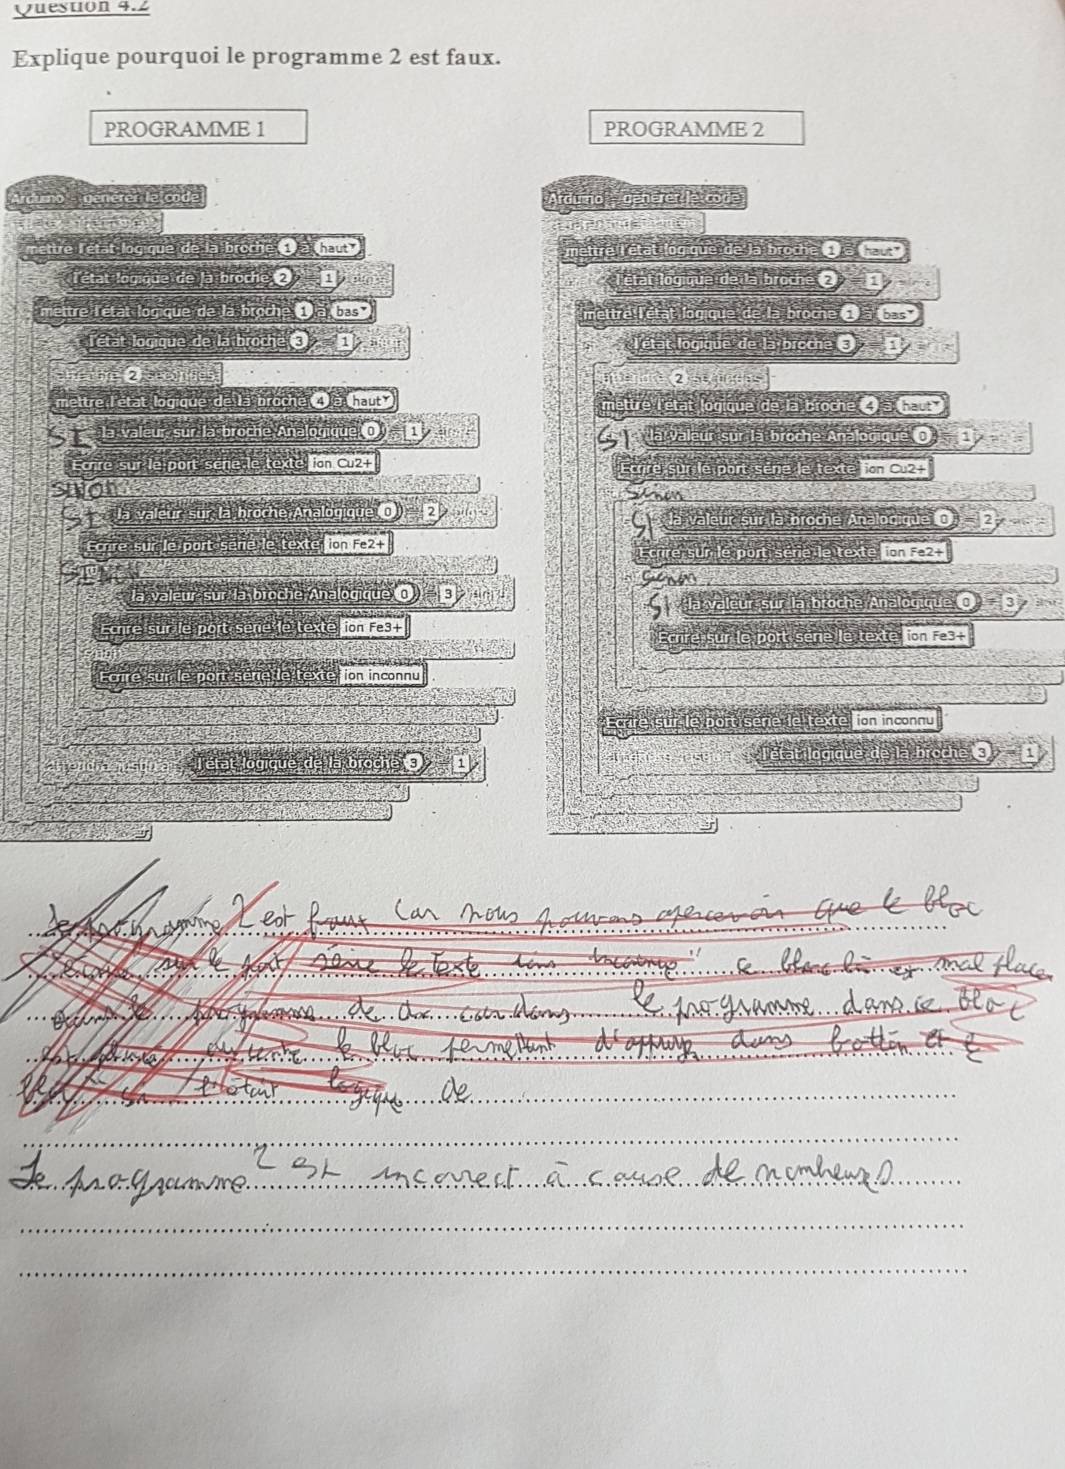 Question 4.2
Explique pourquoi le programme 2 est faux.
PROGRAMME 1
Arduino - générer le code
mettre l'état logique de la broche 1 à haut
l'état logique de la broche 2 = 1
mettre l'état logique de la broche 1 à bas
l'état logique de la broche 3 = 1
2 secondes
mettre l'état logique de la broche 4 à haut
SI la valeur sur la broche Analogique 0 = 1
Ecrire sur le port série le texte ion Cu2+
SINON
SI la valeur sur la broche Analogique 0 = 2
Ecrire sur le port série le texte ion Fe2+
SINON
la valeur sur la broche Analogique 0 = 3
Ecrire sur le port série le texte ion Fe3+
Ecrire sur le port série le texte ion inconnu
l'état logique de la broche 3 = 1
PROGRAMME 2
Arduino - générer le code
mettre l'état logique de la broche 1 à haut
l'état logique de la broche 2 = 1
mettre l'état logique de la broche 1 à bas
l'état logique de la broche 3 = 1
2 secondes
mettre l'état logique de la broche 4 à haut
SI la valeur sur la broche Analogique 0 = 1
Ecrire sur le port série le texte ion Cu2+
Sinon
SI la valeur sur la broche Analogique 0 = 2
Ecrire sur le port série le texte ion Fe2+
Sinon
SI la valeur sur la broche Analogique 0 = 3
Ecrire sur le port série le texte ion Fe3+
Ecrire sur le port série le texte ion inconnu
l'état logique de la broche 3 = 1
Le programme 2 est faux Car nous pouvons apercevoir que le bloc
sur le port série le texte ce bloc est mal placer
le programme dans ce bloc
le bloc permettant d'appuye dans bottin et
l'état logique de
Le programme 2 est incorrect à cause de nombeuses